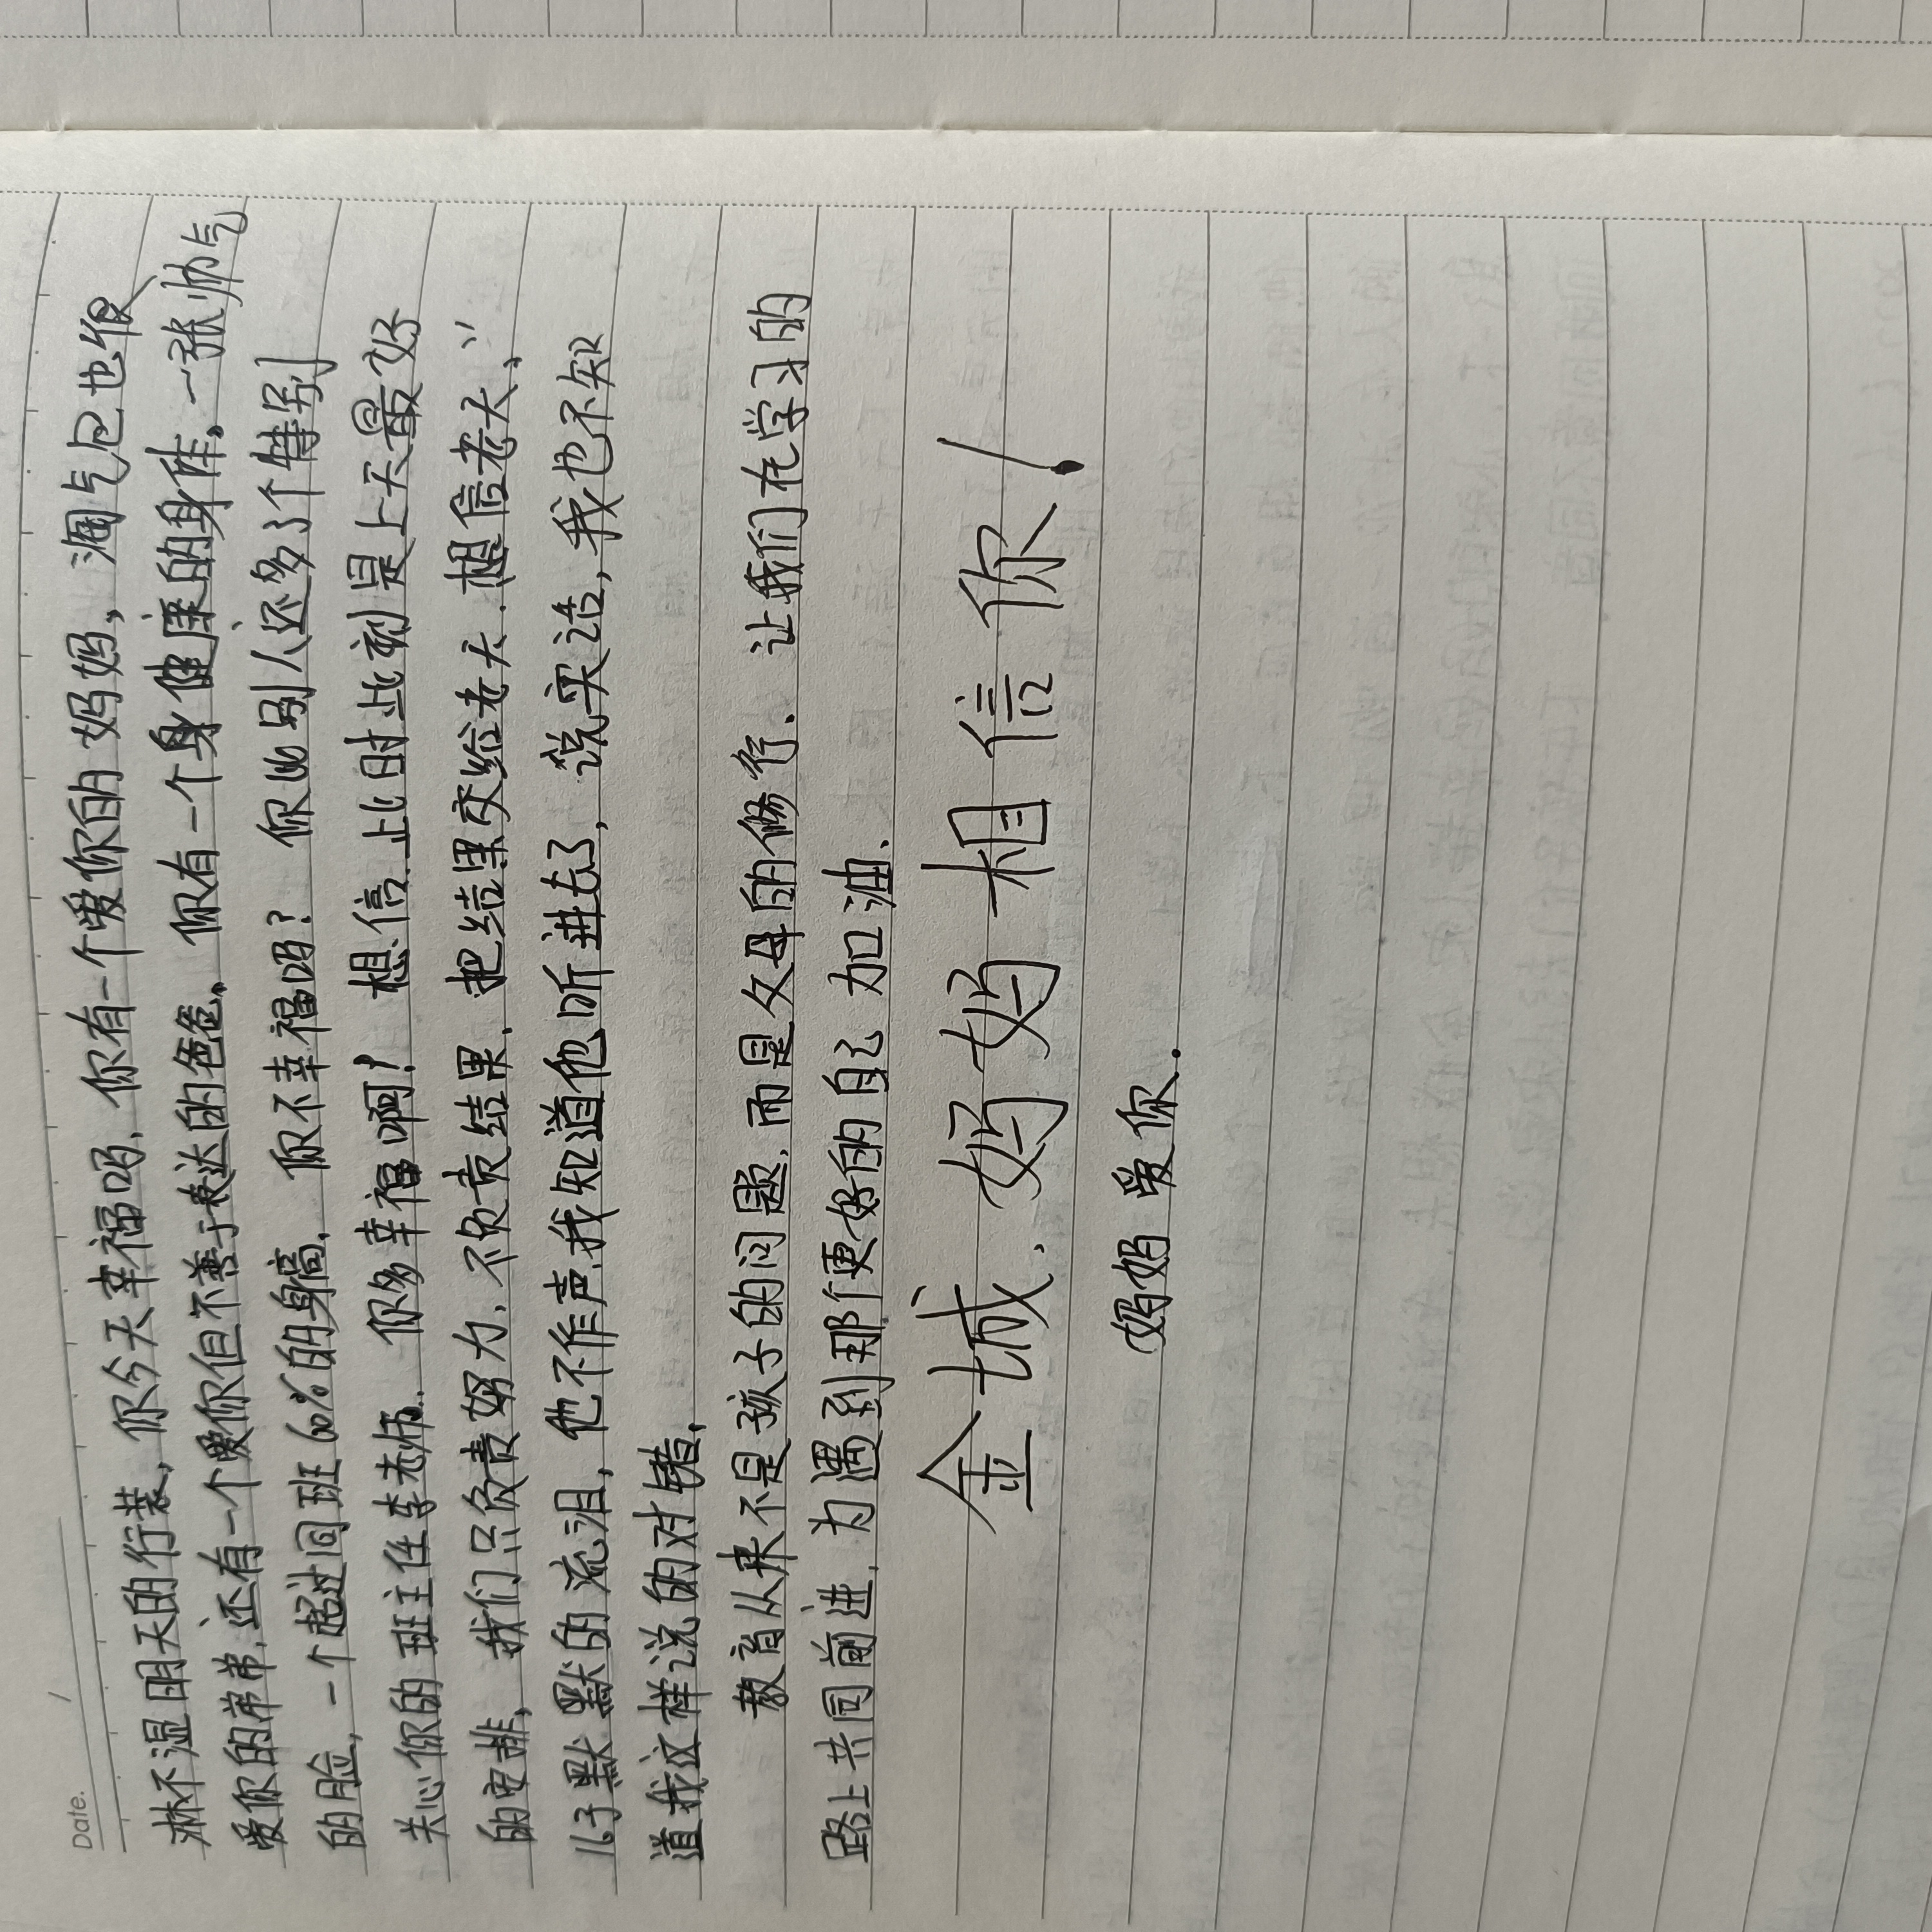 Date. /
淋不湿明天的行装，你今天幸福吗，你有一个爱你的妈妈，淘气包也很
爱你的弟弟，还有一个爱你但不善于表达的爸爸。你有一个身健康的身体，一张帅气
的脸，一个超过同班60%的身高，你不幸福吗？你比别人还多了个特别
关心你的班主任李老师。你多幸福啊！想信，此时此刻是上天最好
的安排，我们只负责努力，不负责结果，把结果交给老天，想信老天，”
儿子默默的流泪，他不作声，我知道他听进去了，说实话，我也不知
道我这样说的对错，
教育从来不是孩子的问题，而是父母的修行、让我们在学习的
路上共同前进，为遇到那个更好的自己加油、
金城，妈妈相信你！
妈妈爱你．